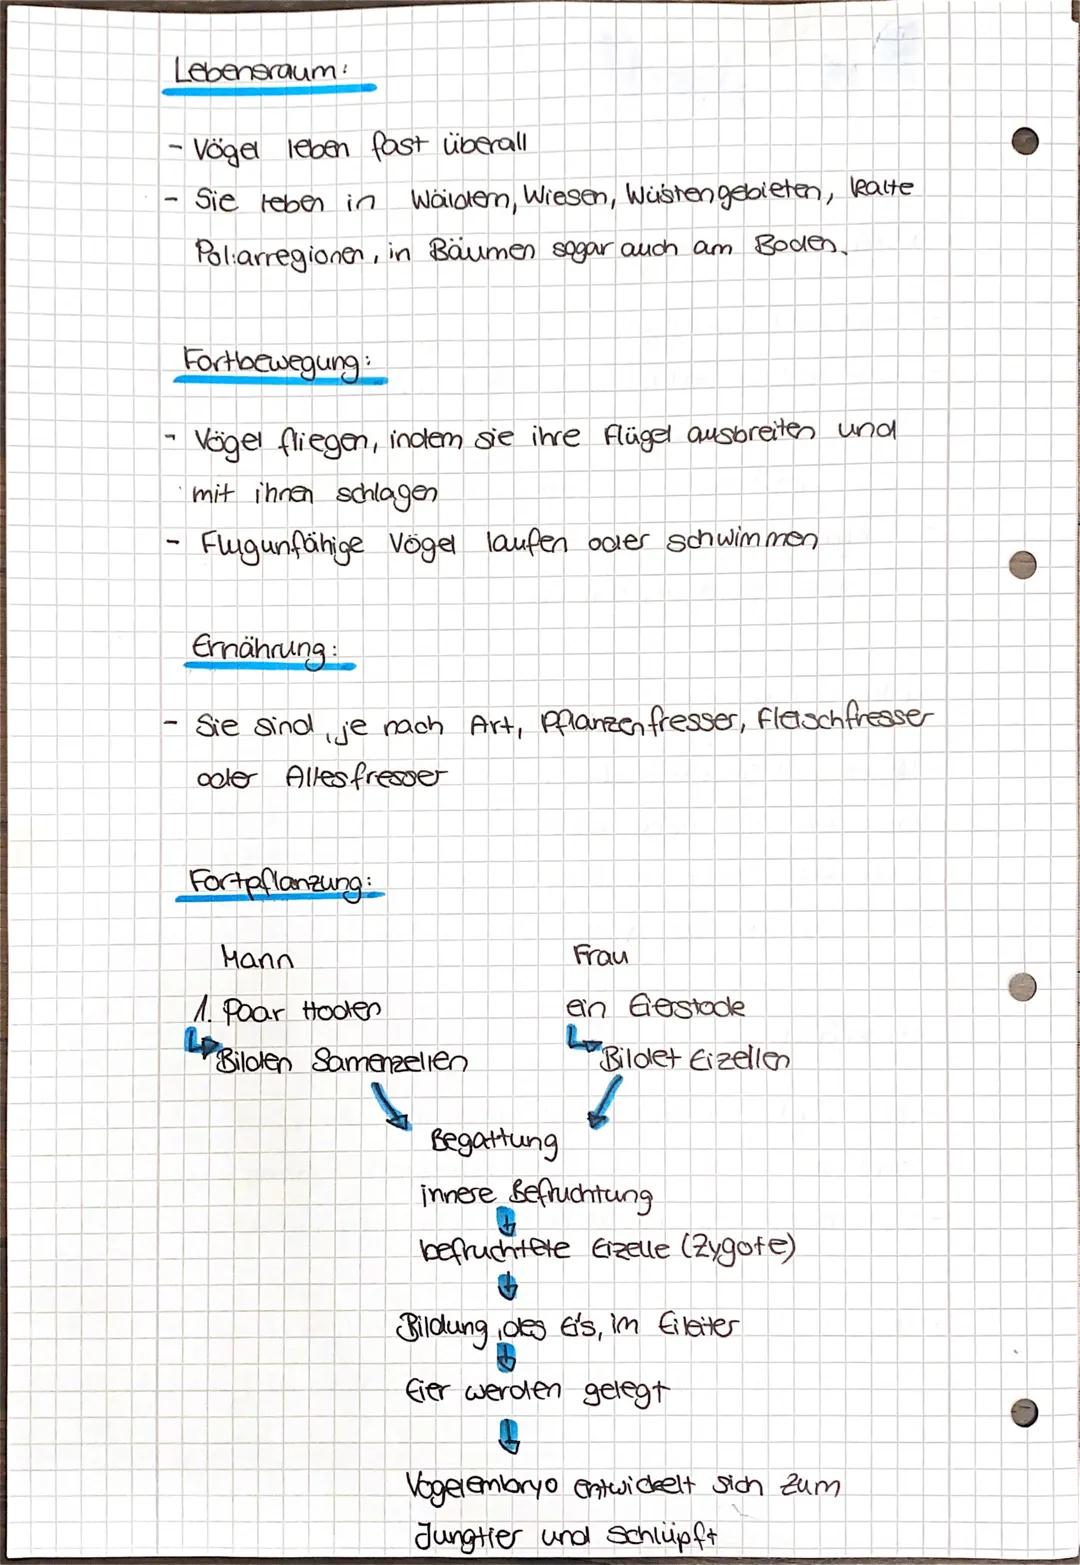 Lebensraum:
- Vögel leben fast überall
- Sie leben in Wäldern, Wiesen, Wüstengebieten, kalte
Polarregionen, in Bäumen sogar auch am Boden.
Fortbewegung:
- Vögel fliegen, indem sie ihre Flügel ausbreiten und
mit ihnen schlagen
- Flugunfähige Vögel laufen oder schwimmen
Ernährung:
- Sie sind, je nach Art, Pflanzenfresser, Fleischfresser
oder Allesfresser
Fortpflanzung:
Mann Frau
1. Paar Hoden ein Eierstock
↳ Bilden Samenzellen ↳ Bildet Eizellen
Begattung
innere Befruchtung
befruchtete Eizelle (Zygote)
Bildung, des Ei's, im Eileiter
Eier werden gelegt
Vogelembryo entwickelt sich zum
Jungtier und schlüpft